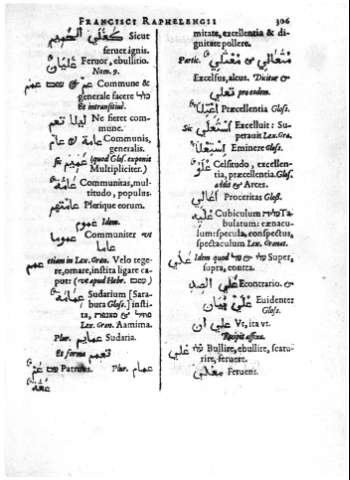 FRANCISCI RAPHELENGII 306
كغلي الحميم Sicut
feruet ignis.
غليان Feruor, ebullitio.
Nom. 9.
עם & עמם Commune &
generale facere כלל
Et intransitiuè.
ليلا تعم Ne fieret com-
mune.
عامة & عام Communis,
generalis.
Sic عميم (quod Glos. exponit
Multipliciter.)
عامة Communitas, mul-
titudo, populus.
عامتهم Plerique eorum.
عموم Idem.
عموما Communiter vt
عاما
عم etiam in Lex. Gran. Velo tege-
re, ornare, instita ligare ca-
put: (vt apud Hebr.
عمامة Sudarium [Sara-
bura Glos.] insti-
ta,
Lex. Gran. Aamima.
Plur. عمايم Sudaria.
Et forma تعمم
عم Patruus. Plur. عمام
عمة
mitate, excellentia & di-
gnitate pollere.
Partic. متعالي & متعلي
Excelsus, altus. Dicitur &
تعلي pro eodem.
اعتلا Præcellentia Glos.
Sic استعلي Excelluit: Su-
perauit Lex. Gra.
استعلا Eminere Glos.
علو Celsitudo, excellen-
tia, præcellentia. Glos.
addit & Arces.
اعالي Proceritas Glos.
عليه Cubiculum עליה Ta-
bulatum: cœnacu-
lum: specula, conspectus,
spectaculum Lex. Granat.
علي Idem quod על & עלי Super,
supra, contra.
علي الضد Econtrario. &
علي بيان Euidenter
Glos.
علي ان Vt, ita vt.
Recipit affixa.
غلي Bullire, ebullire, scatu-
rire, feruere.
مغلي Feruens.